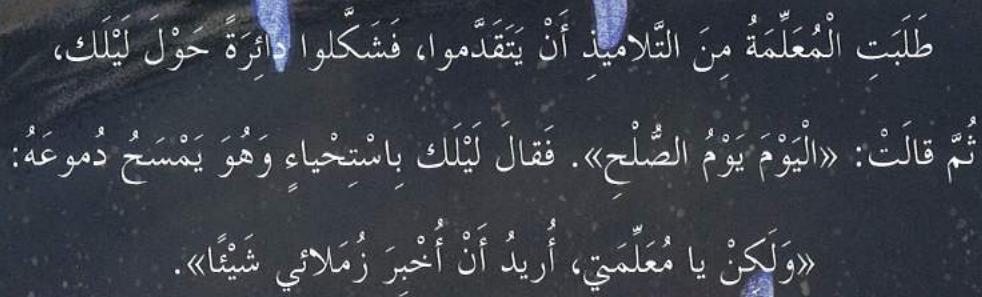 طَلَبَتِ الْمُعَلِّمَةُ مِنَ التَّلاميذِ أَنْ يَتَقَدَّموا، فَشَكَّلوا دائِرَةً حَوْلَ لَيْلَك،
ثُمَّ قالَتْ: «الْيَوْمَ يَوْمُ الصُّلْحِ». فَقالَ لَيْلَك بِاسْتِحْياءٍ وَهُوَ يَمْسَحُ دُموعَهُ:
«وَلَكِنْ يا مُعَلِّمَتي، أُريدُ أَنْ أُخْبِرَ زُمَلائي شَيْئًا».